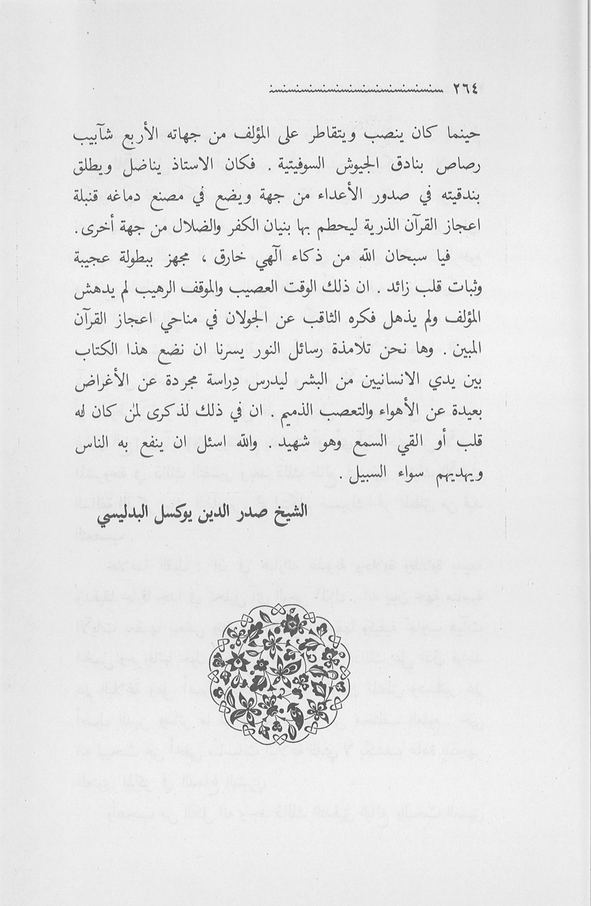 ٢٦٤
حينما كان ينصب ويتقاطر على المؤلف من جهاته الأربع شآبيب
رصاص بنادق الجيوش السوفيتية . فكان الاستاذ يناضل ويطلق
بندقيته في صدور الأعداء من جهة ويضع في مصنع دماغه قنبلة
اعجاز القرآن الذرية ليحطم بها بنيان الكفر والضلال من جهة أخرى .
فيا سبحان الله من ذكاء آلهي خارق ، مجهز ببطولة عجيبة
وثبات قلب زائد . ان ذلك الوقت العصيب والموقف الرهيب لم يدهش
المؤلف ولم يذهل فكره الثاقب عن الجولان في مناحي اعجاز القرآن
المبين . وها نحن تلامذة رسائل النور يسرنا ان نضع هذا الكتاب
بين يدي الانسانيين من البشر ليدرس دِراسة مجردة عن الأغراض
بعيدة عن الأهواء والتعصب الذميم . ان في ذلك لذكرى لمن كان له
قلب أو القي السمع وهو شهيد . والله اسئل ان ينفع به الناس
ويهديهم سواء السبيل .
الشيخ صدر الدين يوكسل البدليسي